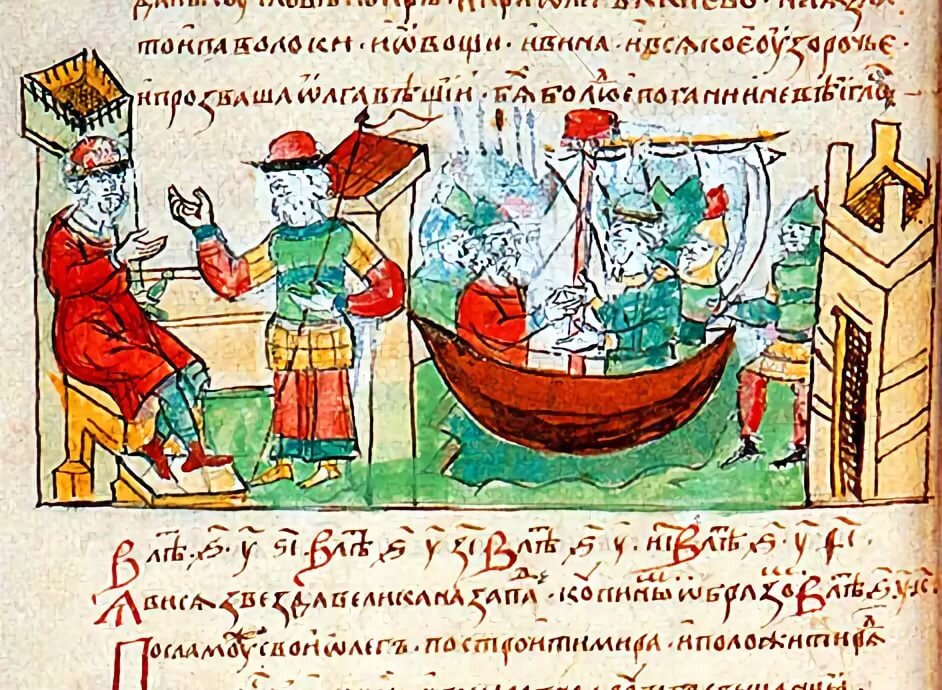 то и паволоки · и ѡвощи · и вина · и всѧкоє оузорочьє ·
и прозваша ѡлга вѣщїи · бѧ бо людїє погани и невѣигласї
В лѣⷮ · ҂ѕ҃ · у҃ · ѕ҃і · В лѣⷮ ҂ѕ҃ у҃ з҃і В лѣⷮ ҂ѕ҃ у҃ · и҃і В лѣⷮ ҂ѕ҃ у҃ ѳ҃і ·
Ависѧ звезда велика на запаⷣ · копииныⷨ ѡбразоⷨ В лѣⷮ ҂ѕ҃ у҃ к҃ ·
Посла моуⷤ свои ѡлегъ · построити мира · и положити рѧⷣ